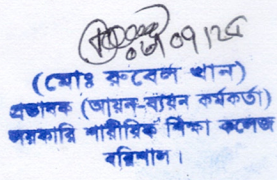 ০৯/০৭/২৫
(মোঃ রুবেল খান)
প্রভাষক (আয়ন-ব্যয়ন কর্মকর্তা)
সরকারি শারীরিক শিক্ষা কলেজ
বরিশাল।